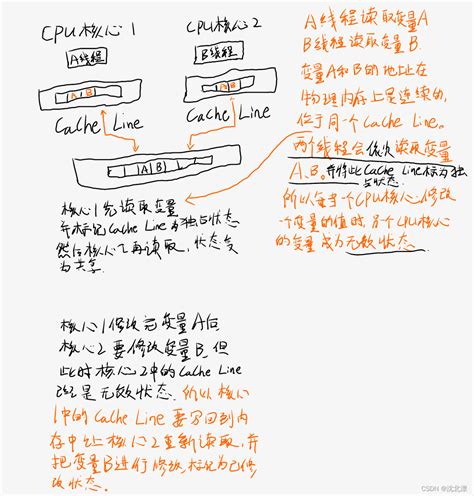 CPU核心1
A线程
A B
Cache Line
CPU核心2
B线程
A B
Cache Line
A B
核心1先读取变量
并标记Cache Line为独占状态
然后核心2再读取,状态变
为共享.
A线程读取变量A
B线程读取变量B.
变量A和B的地址在
物理内存上是连续的,
位于同一个Cache Line。
两个线程会依次读取变量
A.B。并将此Cache Line标为独
占状态.
所以每当一个CPU核心修改
一个变量的值时,另个CPU核心
的变量成为无效状态.
核心1修改完变量A后
核心2要修改变量B,但
此时核心2中的Cache Line
已经是无效状态.所以核心
1中的Cache Line要写回到内
存中让核心2重新读取,并
把变量B进行修改,标记为已修
改状态.
CSDN @沈北源